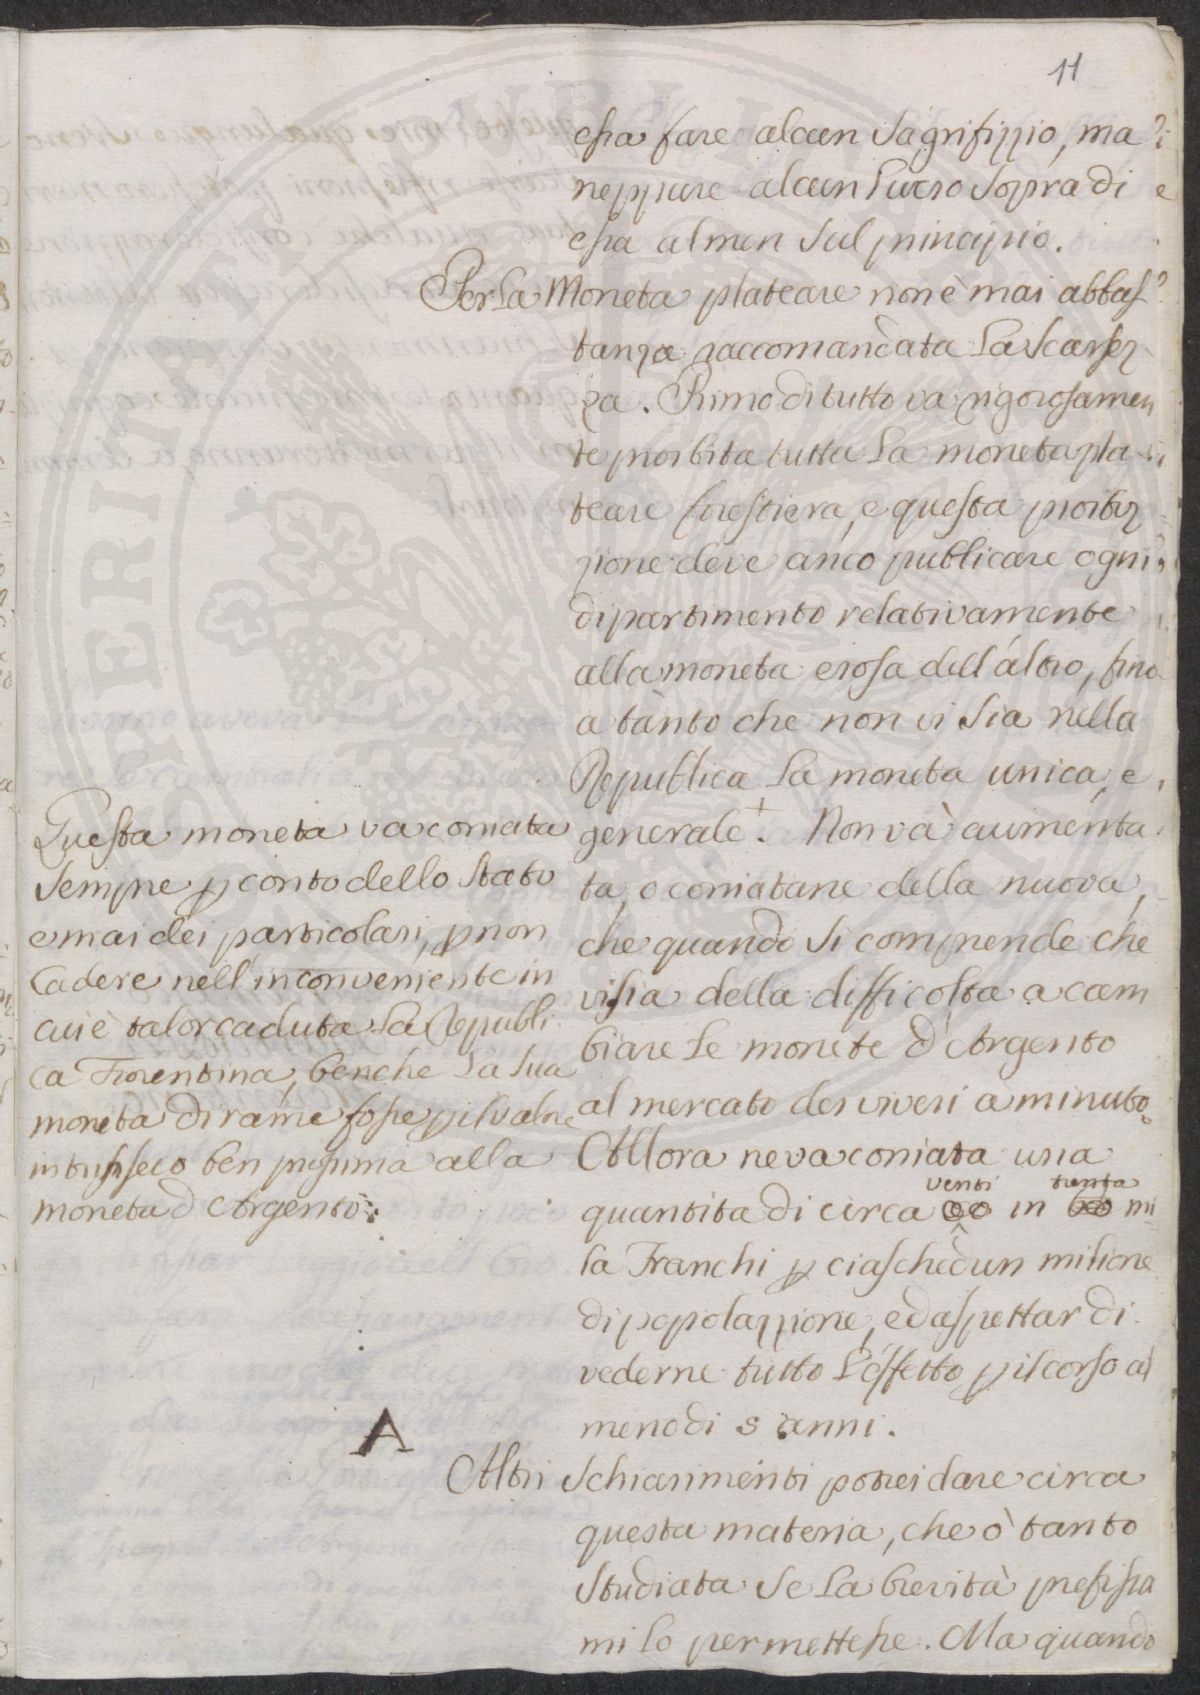 11
essa fare alcun sagrifizzio, ma
neppure alcun lucro sopra di
essa almen sul principio.
Per la Moneta plateare non è mai abbas
tanza raccomandata la scarsez
za. Primo di tutto va rigorosamen
te proibita tutta la moneta pla
teare forestiera, e questa proibiz
zione deve anco publicare ogni
dipartimento relativamente
alla moneta erosa dell'altro, fino
a tanto che non vi sia nella
Republica la moneta unica, e
generale +. Non và aumenta
ta, o coniatane della nuova,
che quando si comprende che
vi sia della difficolta a cam
biare le monete d'Argento
al mercato dei viveri a minuto.
Allora ne va coniata una
venti trenta
quantita di circa 60 in 600 mi
la Franchi p ciaschedun milione
di popolazzione, ed aspettar di
vederne tutto l'effetto p il corso al
meno di 5 anni.
Altri schiarimenti potrei dare circa
questa materia, che ò tanto
studiata se la brevità prefissa
mi lo permettesse. Ma quando
Questa moneta va coniata
sempre p conto dello stato
e mai dei particolari, p non
cadere nell'inconveniente in
cui è talor caduta la Republi
ca Fiorentina, benche la sua
moneta di rame fosse p il valore
intrinseco ben prossima alla
moneta d'Argento.
A
SPERITATI PUBLI